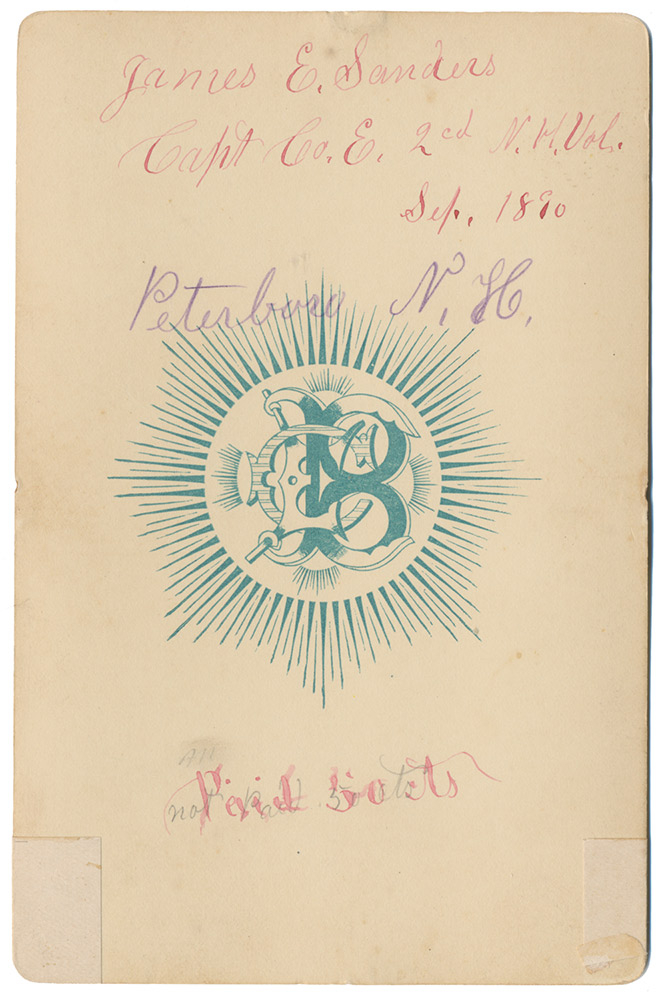 James E. Sanders
Capt Co. E. 2cd N. H. Vol.
Sep. 1890
Peterboro N. H.
All
not Paid 50 cts
Paid 50 cts